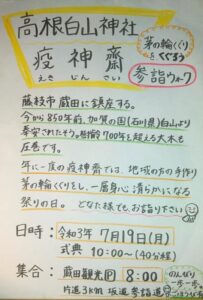 高根白山神社
茅の輪くぐり
をくぐろう
疫神齋
えきじんさい
参詣ウォーク
藤枝市 蔵田に鎮座する。
今から850年前、加賀の国(石川県)白山より
奉安されたそう。樹齢700年を超える大木も
圧巻です。
年に一度の疫神齋では、地域の方の手作り
茅の輪くぐりをし、一層身心清らかになる
祭りの日。どなた様でも、お詣り下さい
日時: 令和3年 7月19日(月)
式典 10:00～(40分程)
集合: 蔵田観光 8:00
片道3km弱 坂道参詣道
のんびり
一歩一歩。